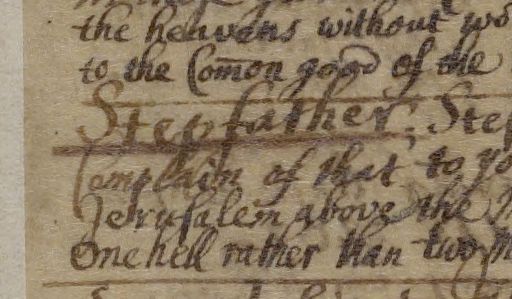 the heavens without
to the Com̄on good of the
Stepfather, Step
Complain of that to yo
Jerusalem above the M
One hell rather than two